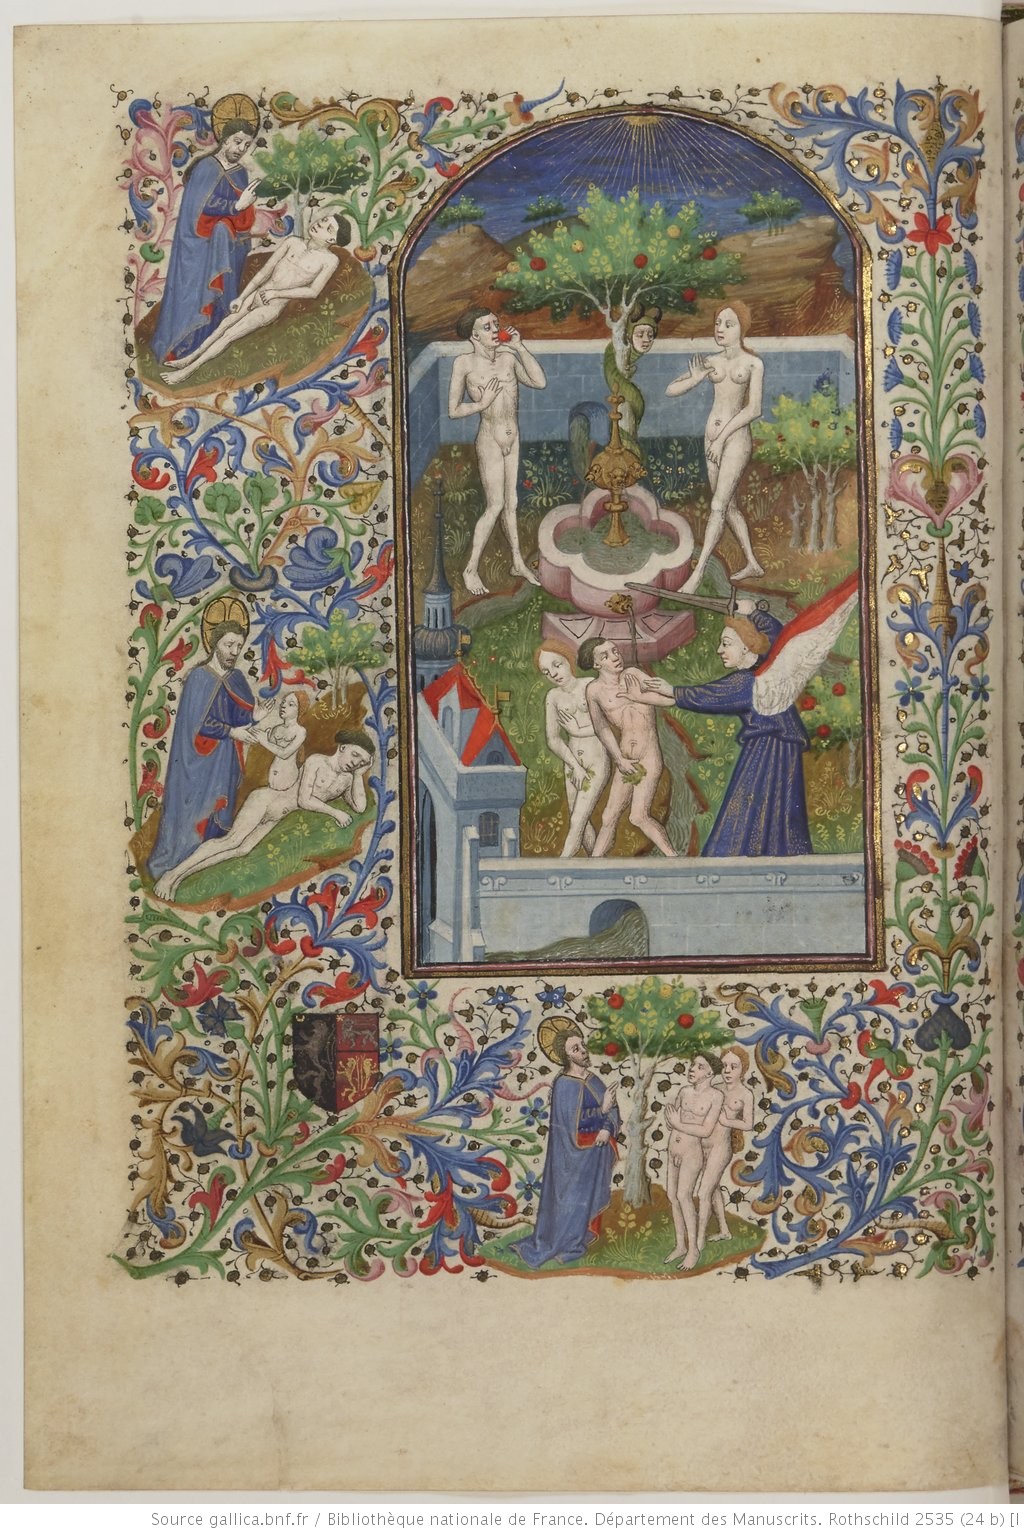 Source gallica.bnf.fr / Bibliothèque nationale de France. Département des Manuscrits. Rothschild 2535 (24 b) [I